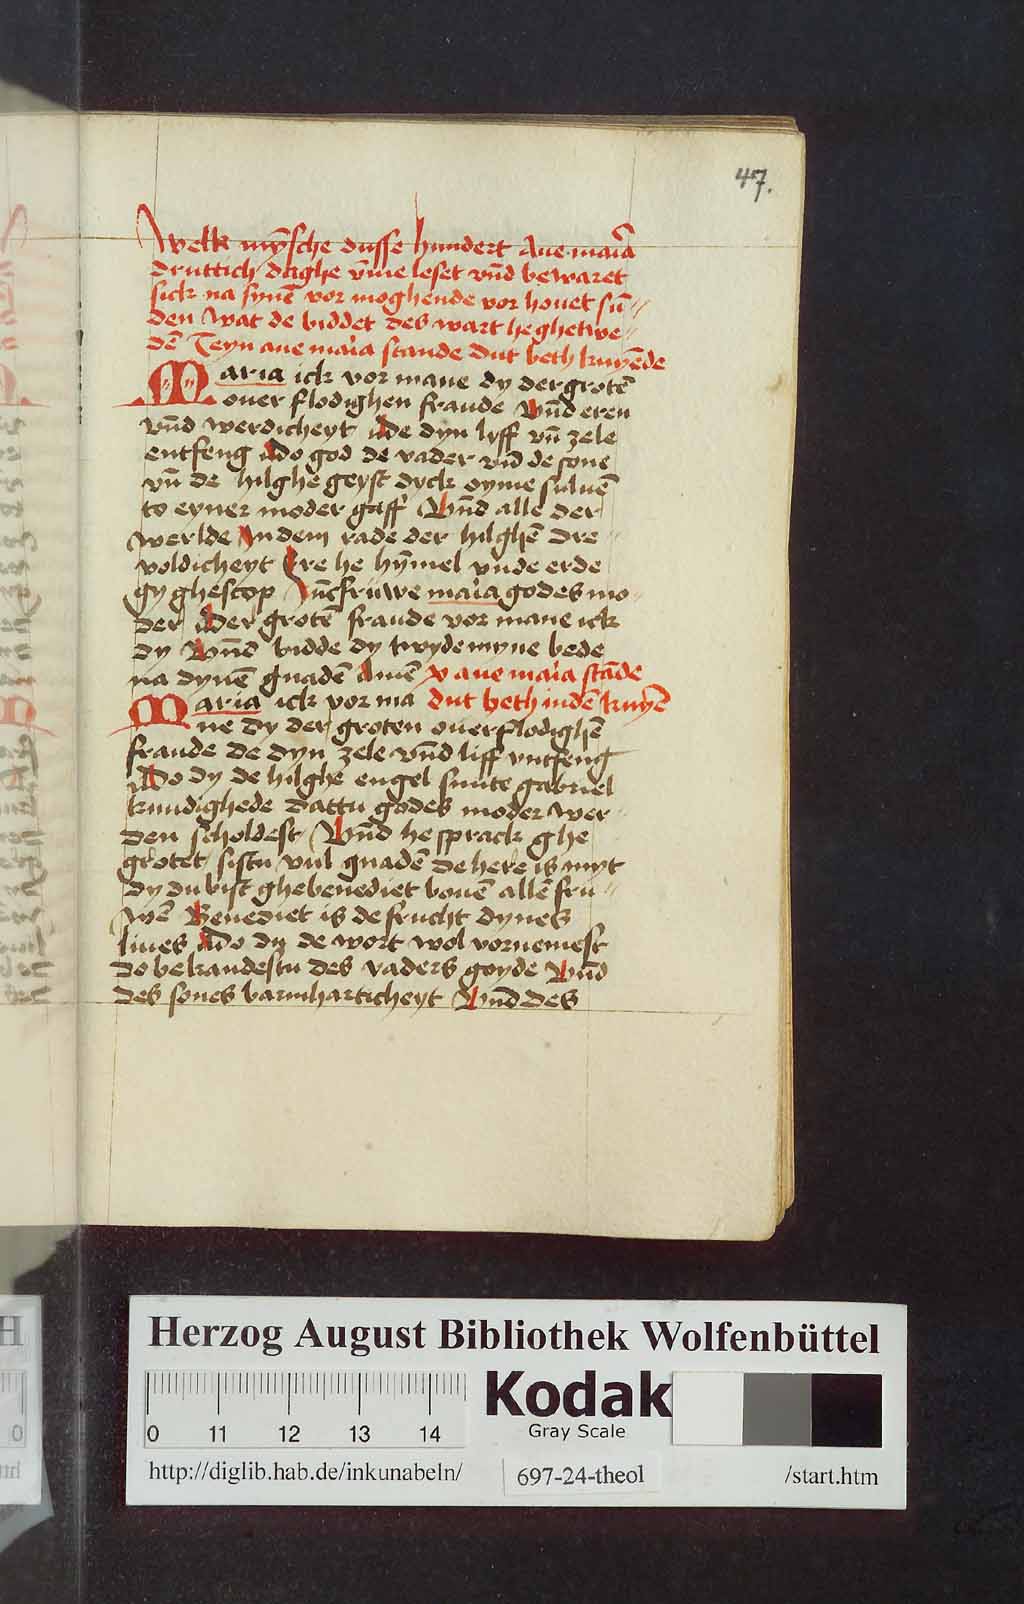 47.
Welk mȳsche dusse hundert Aue maīa
druttich daghe v̄me leset vn̄d bewaret
sick na synē vor moghende vor houet sū-
den Wat de biddet des wart he ghetwe-
dē Teyn aue maīa stande dut beth knyēde
Maria ick vor mane dy der grotē
ouer flodighen fraude Vn̄d eren
vn̄d werdicheyt do dyn lyff vn̄ zele
entfeng do god de vader vn̄d de sone
vn̄ de hilghe geyst dyck syme suluē
to eyner moder gaff Vn̄d alle der
werlde In dem rade der hilghē dre-
voldicheyt Ere he hȳmel vnde erde
gy ghescop Iūcfruwe maīa godes mo-
der der grotē fraude vor mane ick
dy Vn̄ē bidde dy twyde myne bede
na dynē gnadē Amē x aue maīa stāde
Maria ick vor ma dut beth in dē knyē
ne dy der groten ouerflodighē
fraude de dyn zele vn̄d liff vntfeng
Do dy de hilghe engel sunte gabriel
kundighede dattu godes moder wer-
den scholdest Vn̄d he sprack ghe
grotet sistu vul gnadē de here is myt
dy du bist ghebenediet bouē allē fru-
wē Benediet is de frucht dynes
liues Do dy de wort wol vornemest
do bekandestu des vaders goyde Vn̄d
des sones barmharticheyt Vn̄d des
Herzog August Bibliothek Wolfenbüttel
0 11 12 13 14
Kodak
Gray Scale
http://diglib.hab.de/inkunabeln/ 697-24-theol /start.htm